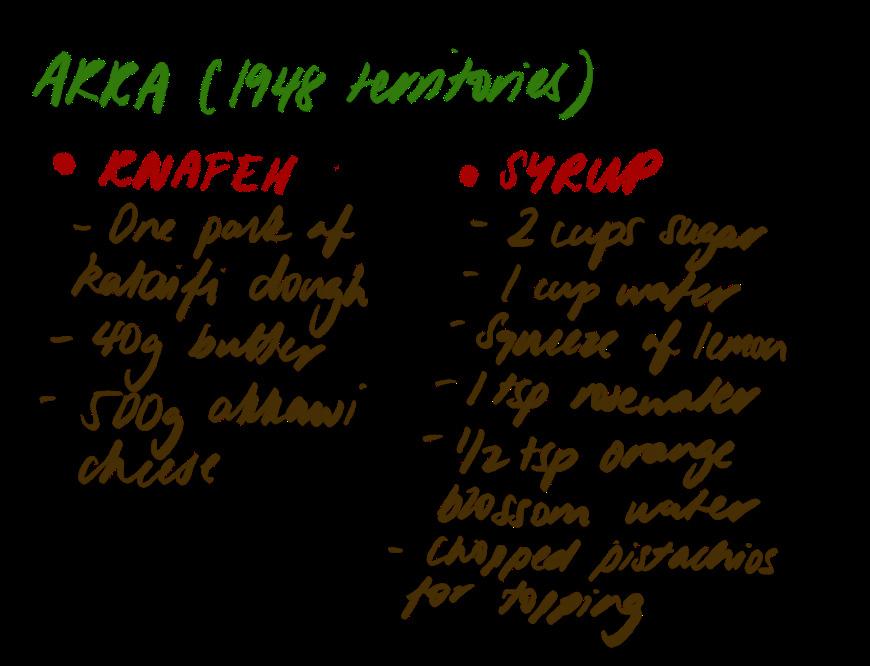 AKKA (1948 territories)
• KNAFEH
- One pack of
kataifi dough
- 40g butter
- 500g akkawi
cheese
• SYRUP
- 2 cups sugar
- 1 cup water
- Squeeze of lemon
- 1 tsp rosewater
- 1/2 tsp orange
blossom water
- Chopped pistachios
for topping